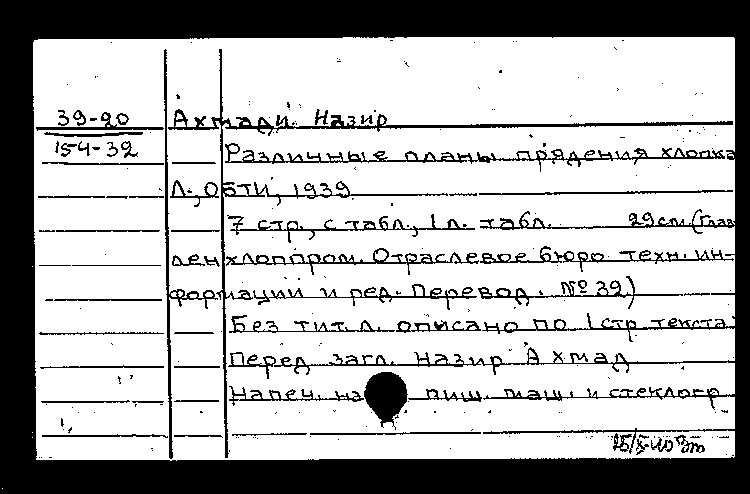 39-20 Ахмади Назир
154-32 Различные планы прядения хлопка
Л., ОБТИ, 1939
7 стр., с табл., 1 л. табл. 29 см. (Глав
ленхлоппром. Отраслевое бюро техн. ин-
формации и ред. Перевод. № 32)
Без тит. л. описано по 1 стр текста.
Перед загл. Назир Ахмад
Напеч. на пиш. маш. и стеклогр